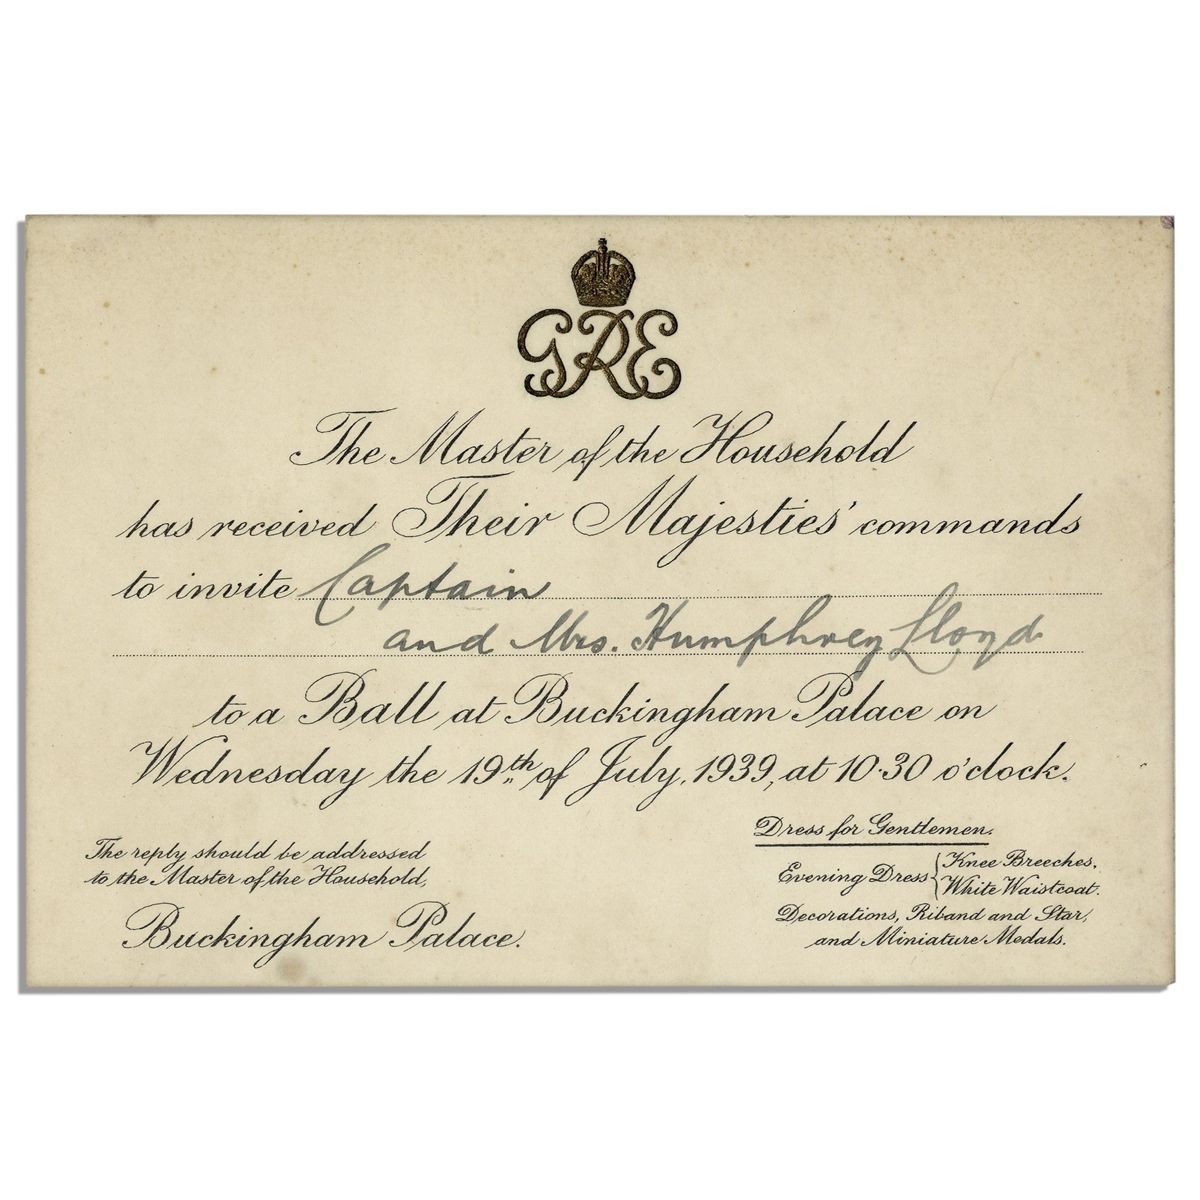 GRE
The Master of the Household
has received Their Majesties' commands
to invite Captain
and Mrs. Humphrey Lloyd
to a Ball at Buckingham Palace on
Wednesday the 19th of July, 1939, at 10·30 o'clock.
The reply should be addressed
to the Master of the Household,
Buckingham Palace.
Dress for Gentlemen.
Evening Dress { Knee Breeches,
White Waistcoat.
Decorations, Riband and Star,
and Miniature Medals.